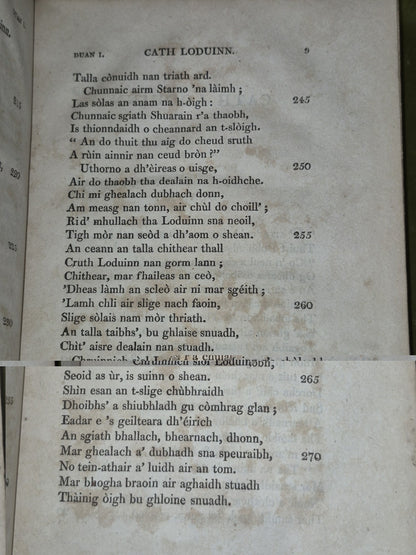 DUAN I. CATH LODUINN. 9
Talla cònuidh nan triath ard.
Chunnaic airm Starno 'na làimh ;
Las sòlas an anam na h-òigh : 245
Chunnaic sgiath Shuarain r'a thaobh,
Is thionndaidh o cheannard an t-slòigh.
" An do thuit thu aig do cheud sruth
A rùin ainnir nan ceud bròn ?"
Uthorno a dh'éireas o uisge, 250
Air do thaobh tha dealain na h-oidhche.
Chi mi ghealach dubhach donn,
Am measg nan tonn, air chùl do choill' ;
Rid' mhullach tha Loduinn sna neoil,
Tigh mòr nan seòd a dh'aom o shean. 255
An ceann an talla chithear thall
Cruth Loduinn nan gorm lann ;
Chithear, mar fhaileas an ceò,
'Dheas làmh an scleò air ni mar sgéith ;
'Lamh chli air slige nach faoin, 260
Slige sòlais nam mòr thriath.
An talla taibhs', bu ghlaise snuadh,
Chit' aisre dealain nan stuadh.
Seoid as ùr, is suinn o shean. 265
Shin esan an t-slige chùbhraidh
Dhoibhs' a shiubhladh gu còmhrag glan ;
Eadar e 's geilteara dh'éirich
An sgiath bhallach, bhearnach, dhonn,
Mar ghealach a' dubhadh sna speuraibh, 270
No tein-athair a' luidh air an tom.
Mar bhogha braoin air aghaidh stuadh
Thàinig òigh bu ghloine snuadh.
215
220
225
230